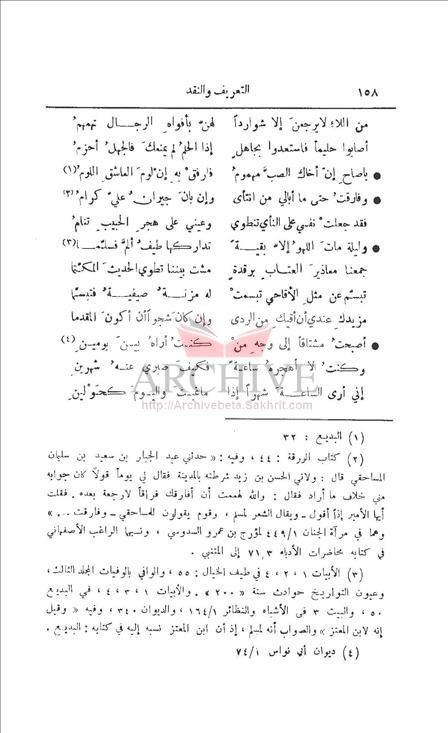 ١٥٨ التعريف والنقد
من اللاءِ لايرجعنَ إلا شوارداً لهنَّ بأفواه الرجال تهمهمُ
أصابوا حليماً فاستعدوا بجاهلٍ إذا الحلمُ لم يمنعكَ فالجهلُ أحزمُ
● ياصاح إن أخاك الصبَّ مهمومُ فارفقْ به إن لوم العاشق اللومُ (١)
● وفارقتُ حتى ما أبالي من انتأى وإن بانَ جيرانٌ عليَّ كرامُ (٢)
فقد جعلتْ نفسي على النأي تنطوي وعيني على هجر الحبيب تنامُ
● وليلة مات اللهو إلا بقيةً تداركها طيفٌ ألمَّ فسلّما (٣)
جمعنا معاذير العتاب برقدةٍ مشت بيننا تطوي الحديث المكتّما
تبسّم عن مثل الأقاحي تبسمتْ له مزنةٌ صيفيةٌ فتبسّما
مزيدك عندي أن أقيك من الردى وإن كان شجواً أن أكون المقدما
● أصبحتُ مشتاقاً إلى وجهِ مَنْ كنتُ أراهُ بين يومينِ (٤)
وكنتُ لا أهجره ساعةً فكيف صبري عنه شهرين
إني أرى الساعة شهراً إذا ماغبتَ واليوم كحولين
(١) البديع : ٣٢
(٢) كتاب الورقة : ٤٤ ، وفيه : « حدثني عبد الجبار بن سعيد بن سليمان
المساحقي قال : ولاني الحسن بن زيد شرطته بالمدينة فقال لي يوماً قولاً كان جوابه
مني خلاف ما أراد فقال : والله لهممت أن أفارقك فراقاً لارجعة بعده . فقلت
أيها الأمير إذاً أقول ـ ويقال الشعر لمسلم ، وقوم يقولون للمساحقي ـ وفارقت ... »
وهما في مرآة الجنان ٤٤٩/١ لمؤرج بن عمرو السدوسي ، ونسبها الراغب الأصفهاني
في كتابه محاضرات الأدباء ٧١,٣ إلى المتنبي .
(٣) الأبيات ١ ، ٢ ، ٤ في طيف الخيال : ٥٥ ، والوافي بالوفيات المجلد الثالث ،
وعيون التواريخ حوادث سنة « ٢٠٠ » . والأبيات ١ ، ٣ ، ٤ ، في البديع
٥٠ ، والبيت ٣ في الأشباه والنظائر ١٦٤/١ ، والديوان ٣٤٠ ، وفيه « وقيل
إنه لابن المعتز » والصواب أنه لمسلم ، إذ أن ابن المعتز نسبه إليه في كتابه : البديع .
(٤) ديوان أبي نواس ٧٤/١
ARCHIVE
http://Archivebeta.Sakhrit.com